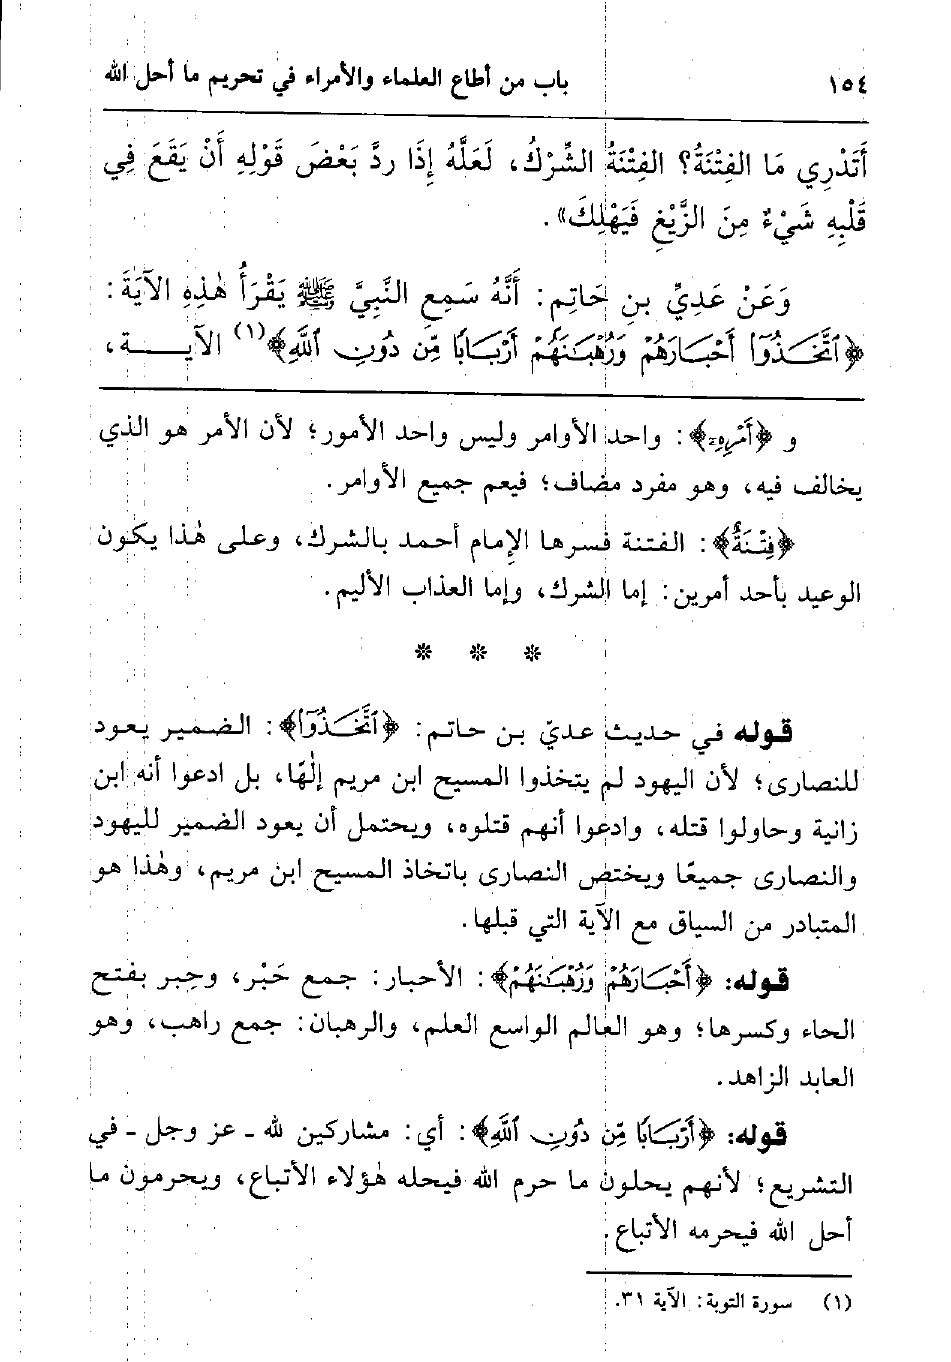 ١٥٤ باب من أطاع العلماء والأمراء في تحريم ما أحل الله
أَتَدْرِي مَا الفِتْنَةُ؟ الفِتْنَةُ الشِّرْكُ، لَعَلَّهُ إِذَا ردَّ بَعْضَ قَوْلِهِ أَنْ يَقَعَ فِي
قَلْبِهِ شَيْءٌ مِنَ الزَّيْغِ فَيَهْلِكَ».
وَعَنْ عَدِيِّ بنِ حَاتِم: أَنَّهُ سَمِعِ النَّبِيَّ ﷺ يَقْرَأُ هٰذِهِ الآيَةَ:
﴿ٱتَّخَذُوٓا۟ أَحْبَارَهُمْ وَرُهْبَـٰنَهُمْ أَرْبَابًا مِّن دُونِ ٱللَّهِ﴾(١) الآيــــة،
و ﴿أَمْرِهِۦٓ﴾: واحد الأوامر وليس واحد الأمور؛ لأن الأمر هو الذي
يخالف فيه، وهو مفرد مضاف؛ فيعم جميع الأوامر.
﴿فِتْنَةٌ﴾: الفتنة فسرها الإمام أحمد بالشرك، وعلى هٰذا يكون
الوعيد بأحد أمرين: إما الشرك، وإما العذاب الأليم.
* * *
قوله في حديث عديّ بن حاتم: ﴿ٱتَّخَذُوٓا۟﴾: الضمير يعود
للنصارى؛ لأن اليهود لم يتخذوا المسيح ابن مريم إلٰهًا، بل ادعوا أنه ابن
زانية وحاولوا قتله، وادعوا أنهم قتلوه، ويحتمل أن يعود الضمير لليهود
والنصارى جميعًا ويختص النصارى باتخاذ المسيح ابن مريم، وهٰذا هو
المتبادر من السياق مع الآية التي قبلها.
قوله: ﴿أَحْبَارَهُمْ وَرُهْبَـٰنَهُمْ﴾: الأحبار: جمع حَبْر، وحِبر بفتح
الحاء وكسرها؛ وهو العالم الواسع العلم، والرهبان: جمع راهب، وهو
العابد الزاهد.
قوله: ﴿أَرْبَابًا مِّن دُونِ ٱللَّهِ﴾: أي: مشاركين لله ـ عز وجل ـ في
التشريع؛ لأنهم يحلون ما حرم الله فيحله هٰؤلاء الأتباع، ويحرمون ما
أحل الله فيحرمه الأتباع.
(١) سورة التوبة: الآية ٣١.